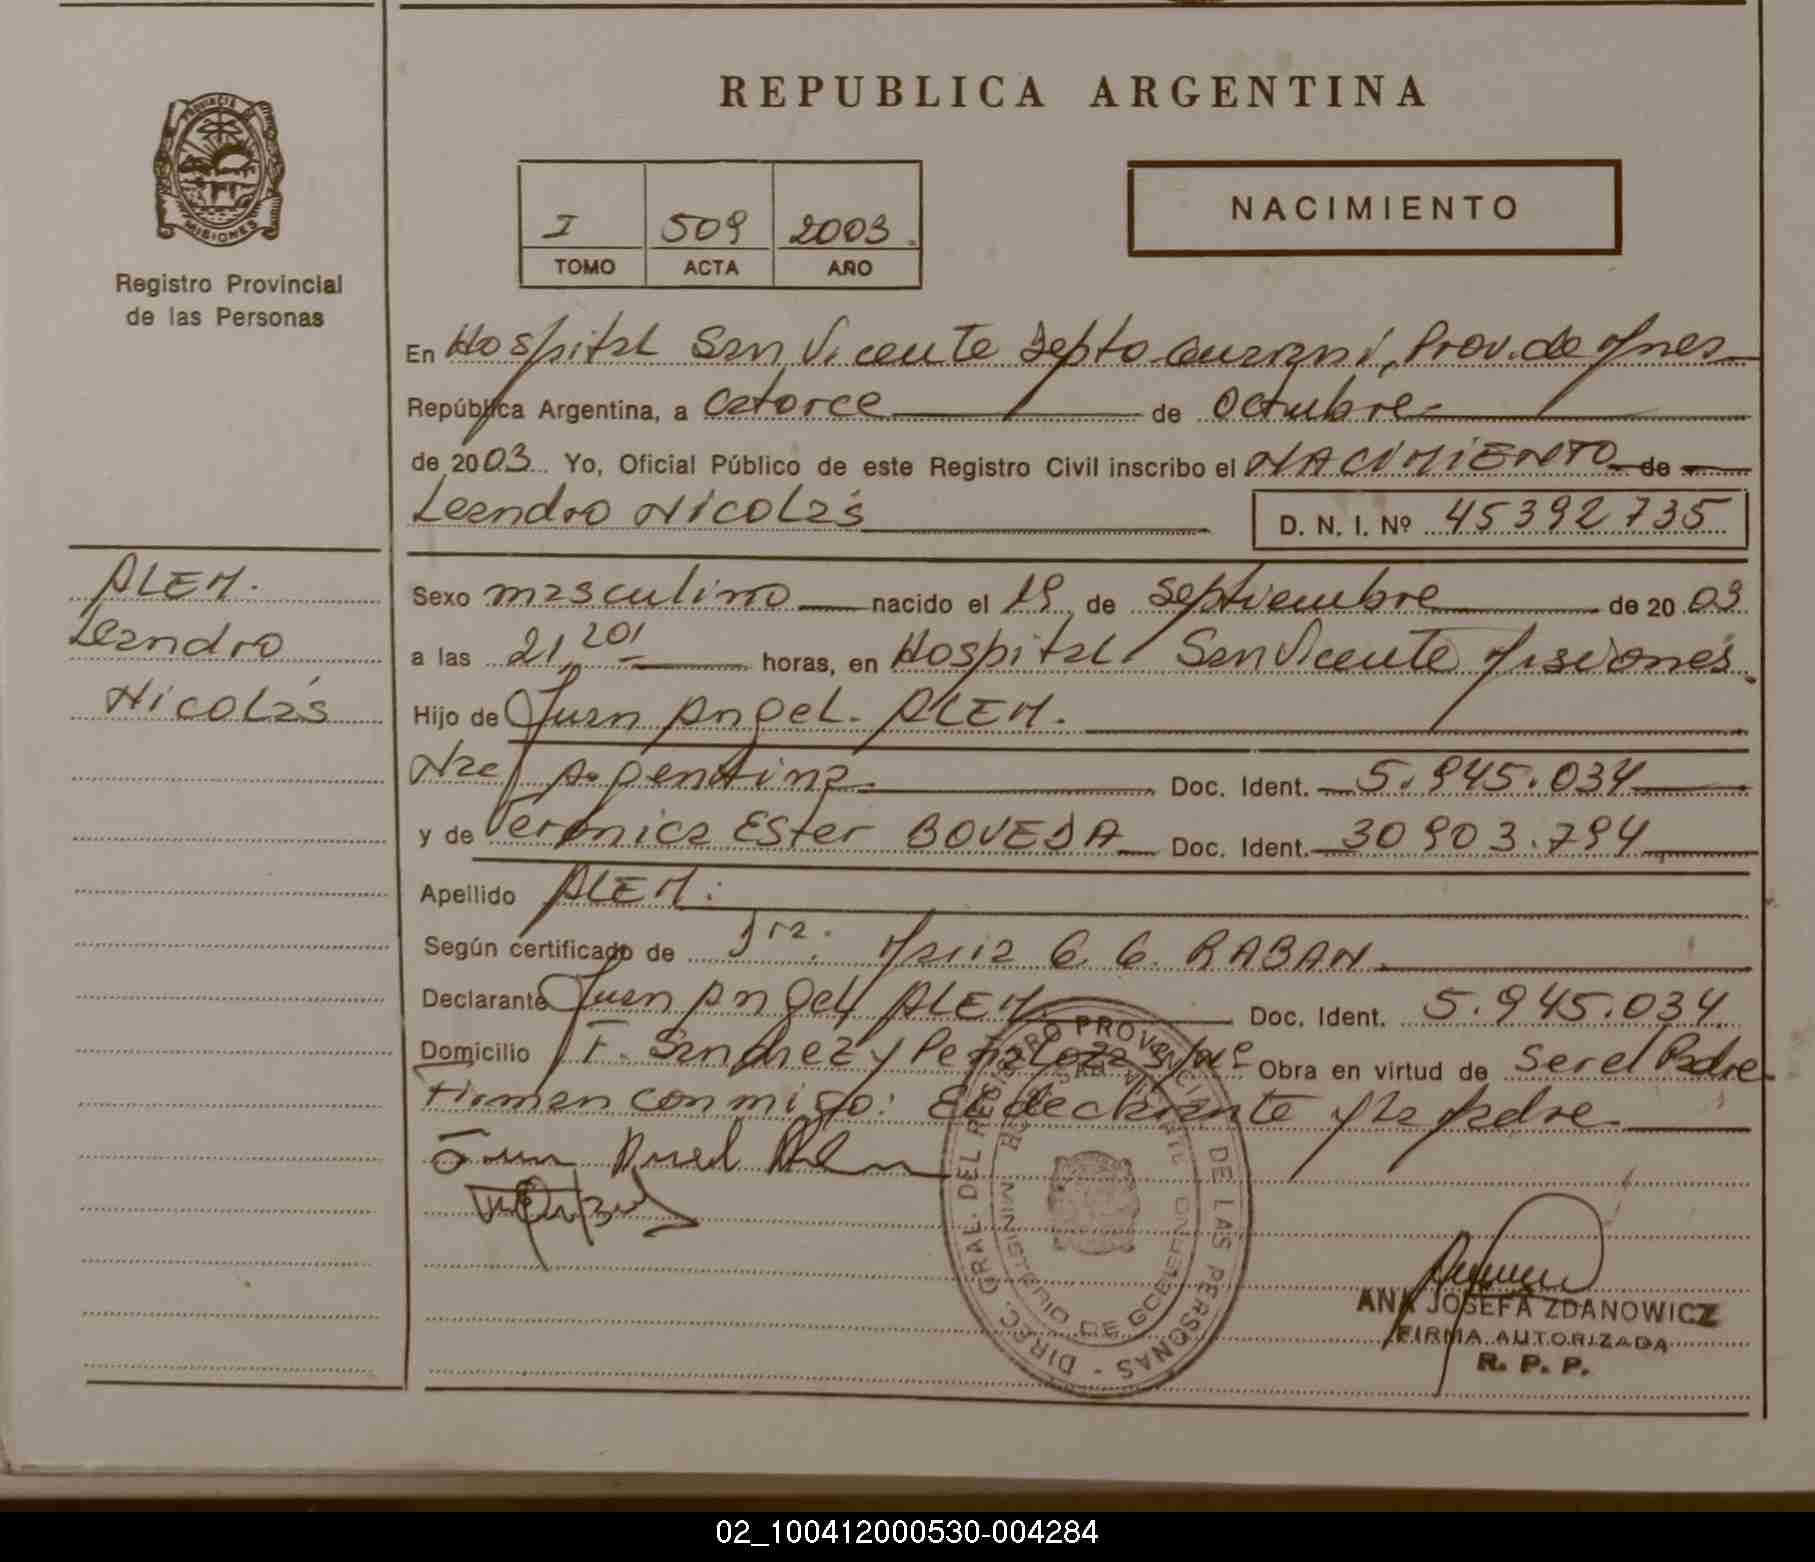 REPUBLICA ARGENTINA
PROVINCIA DE
MISIONES
Registro Provincial
de las Personas
I 509 2003
TOMO ACTA AÑO
NACIMIENTO
En Hospital San Vicente Depto Guaraní, Prov. de Mnes
República Argentina, a Catorce de Octubre
de 2003 Yo, Oficial Público de este Registro Civil inscribo el NACIMIENTO de
Leandro Nicolás D. N. I. Nº 45392735
ALEM.
Leandro
Nicolás
Sexo masculino nacido el 19 de septiembre de 2003
a las 21,20 horas, en Hospital San Vicente Misiones
Hijo de Juan Angel ALEM.
Nac Argentina Doc. Ident. 5.945.034
y de Veronica Ester BOVEDA Doc. Ident. 30903.794
Apellido ALEM.
Según certificado de Dra. Maria C. G. RABAN
Declarante Juan Angel ALEM Doc. Ident. 5.945.034
Domicilio F. Sanchez y Peñaloza s/nº Obra en virtud de Ser el Padre
Firman conmigo: El declarante y la madre
DIREC. GRAL. DEL REGISTRO PROVINCIAL DE LAS PERSONAS -
MINISTERIO DE GOBIERNO
ANA JOSEFA ZDANOWICZ
FIRMA AUTORIZADA
R. P. P.
02_100412000530-004284